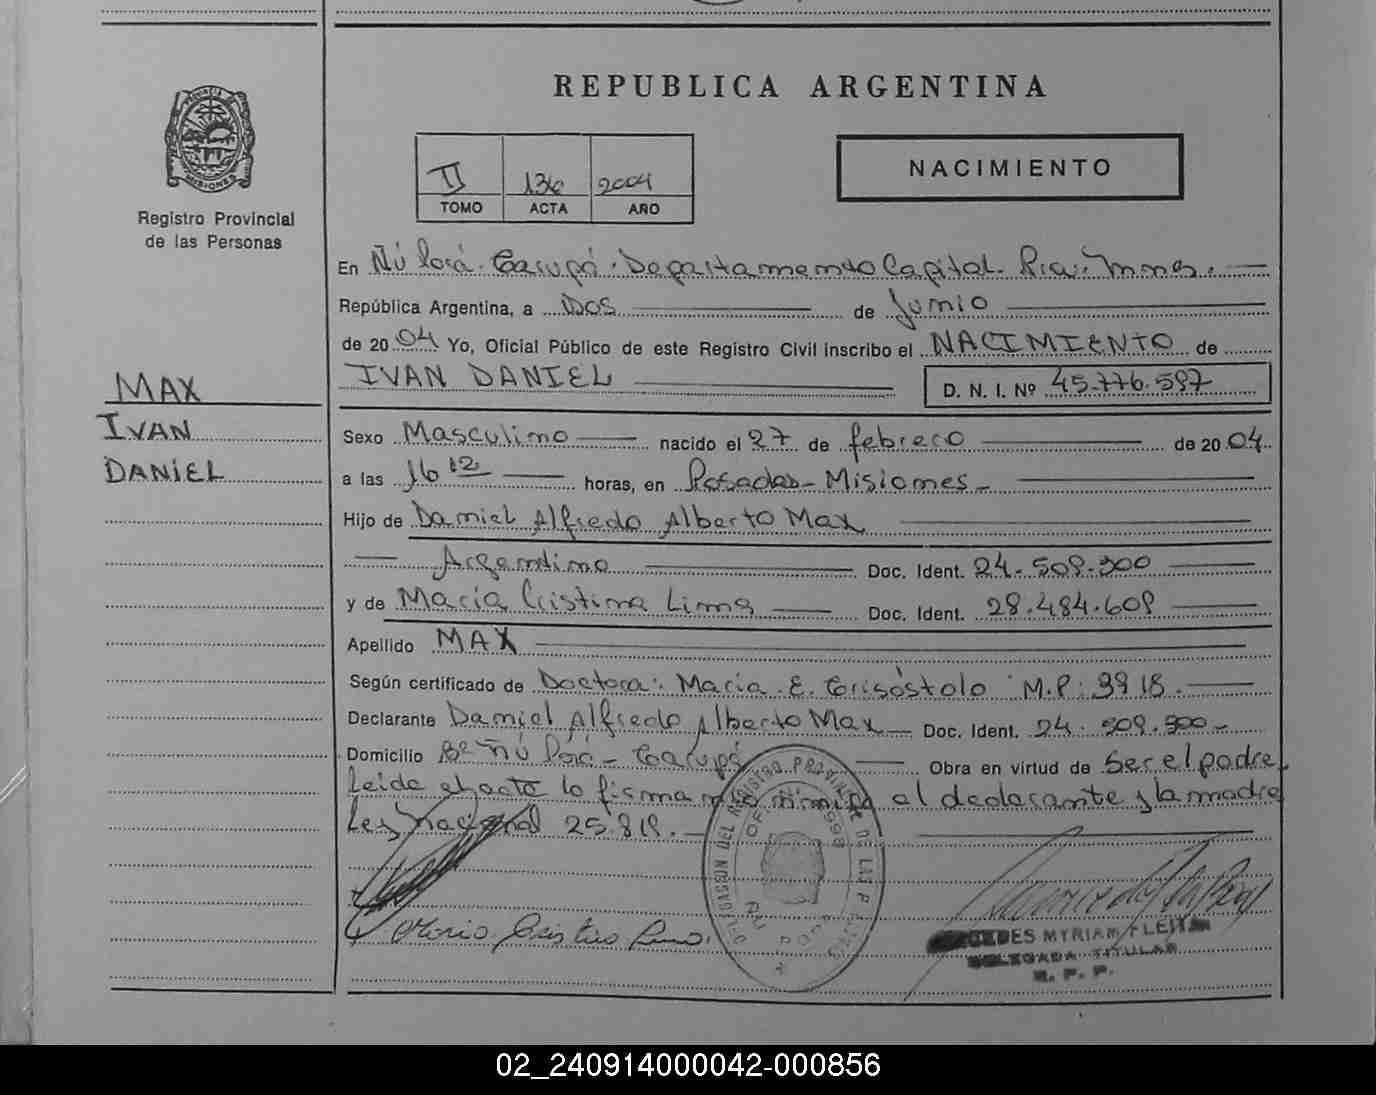 REPUBLICA ARGENTINA
PROVINCIA DE
MISIONES
Registro Provincial
de las Personas
II 136 2004
TOMO ACTA AÑO
NACIMIENTO
En Ñú Porá. Garupá. Departamento Capital. Pcia. Mnes.
República Argentina, a Dos de Junio
de 2004 Yo, Oficial Público de este Registro Civil inscribo el NACIMIENTO de
IVAN DANIEL D. N. I. Nº 45.776.597
MAX
IVAN
DANIEL
Sexo Masculino nacido el 27 de febrero de 2004
a las 16 12 horas, en Posadas - Misiones -
Hijo de Daniel Alfredo Alberto Max
Argentino Doc. Ident. 24.509.300
y de María Cristina Lima Doc. Ident. 28.484.609
Apellido MAX
Según certificado de Doctora: María E. Crisóstolo M.P: 3918.
Declarante Daniel Alfredo Alberto Max Doc. Ident. 24.509.300-
Domicilio Bº Ñú Porá - Garupá Obra en virtud de Ser el padre
Leida el acta la firma el declarante y la madre
Ley Nacional 25.819.
Maria Cristina Lima.
DELEGACION DEL REGISTRO PROVINCIAL DE LAS
MYRIAM FLEITA
DELEGADA TITULAR
R. P. P.
02_240914000042-000856